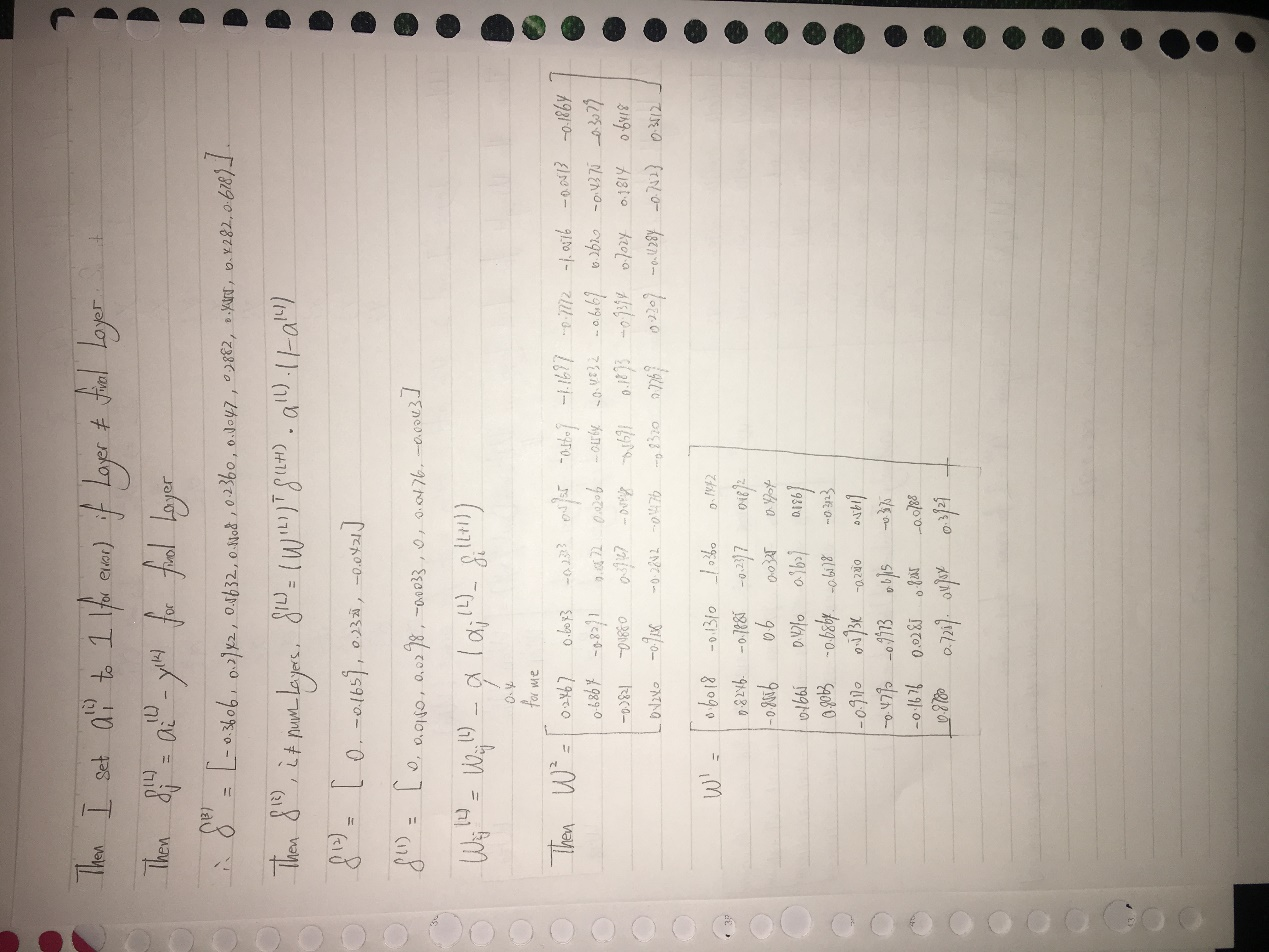 Then I set a_i^(i) to 1 (for error) if Layer ≠ final Layer.
Then δ_j^(L) = a_i^(L) - y^(k) for final Layer
∴ δ^(3) = [-0.3606, 0.2742, 0.5632, 0.5508, 0.2360, 0.5047, 0.2882, 0.4282, 0.6781].
Then δ^(i), i ≠ num_Layers, δ^(L) = (W^(L))^T δ^(L+1) · a^(L) · (1-a^(L))
δ^(2) = [0, -0.1659, 0.2325, -0.0421]
δ^(1) = [0, 0.0150, 0.0298, -0.0033, 0, 0.0176, -0.0043]
W_ij^(L) = W_ij^(L) - α (a_j^(L) - δ_i^(L+1))
0.4
for me
Then W^2 =
0.2467 0.6043 -0.2313 -0.5607 -1.1697 -0.7772 -1.0516 -0.0513 -0.1864
0.6864 -0.8291 0.0572 0.0206 -0.5564 -0.4032 -0.6069 0.2620 -0.4375 -0.3079
-0.2821 -0.4880 0.3747 -0.5691 0.1893 -0.9394 0.7024 0.1814 0.6418
0.5240 -0.2842 -0.4476 -0.8320 0.7769 0.2309 -0.4284 -0.7523 0.3512
W^1 =
0.6018 -0.1310 -1.0360 0.1442
0.8246 -0.7885 -0.2397 0.4892
-0.8556 0.6 0.0325 0.4204
0.1665 0.4710 0.9627 0.1869
0.8063 -0.6864 -0.6178 -0.3123
-0.9710 0.5734 -0.2200 0.5619
-0.4790 -0.9773 0.6715 -0.375
-0.1676 0.0285 0.8255 -0.0788
0.8780 0.7259 0.4754 0.3929